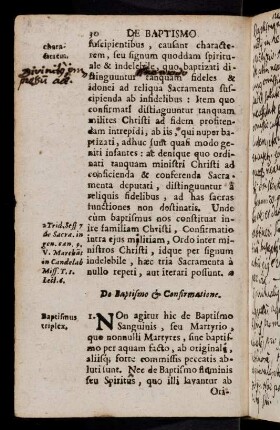 30 DE BAPTISMO
chara-
cterem.
suscipientibus, causant characte-
rem, seu signum quoddam spiritu-
ale & indelebile, quo baptizati di-
stinguuntur tanquam fideles &
idonei ad reliqua Sacramenta su-
scipienda ab infidelibus : Item quo
confirmati distinguuntur tanquam
milites Christi ad fidem profiten-
dam intrepidi, ab iis, qui nuper ba-
ptizati, adhuc sunt quasi modo ge-
niti infantes : at denique quo ordi-
nati tanquam ministri Christi ad
conficienda & conferenda Sacra-
menta deputati, distinguuntur à
reliquis fidelibus, ad has sacras
functiones non destinatis. Unde
cum baptismus nos constituat in-
tra familiam Christi, Confirmatio
intra ejus militiam, Ordo inter mi-
nistros Christi, idque per signum
indelebile, hæc tria Sacramenta à
nullo repeti, aut iterari possunt.
a Trid. Sess. 7
de Sacra. in
gen. can. 9.
V. Marchāt
in Candelab
Myst. T. 1.
Lect. 6.
De Baptismo & Confirmatione.
Baptismus
triplex.
1. NOn agitur hic de Baptismo
Sanguinis, seu Martyrio,
quo nonnulli Martyres, sine baptis-
mo per aquam facto, ab originali,
aliisq; forte commissis peccatis ab-
luti sunt. Nec de Baptismo flaminis
seu Spiritus, quo illi lavantur ab
Ori-